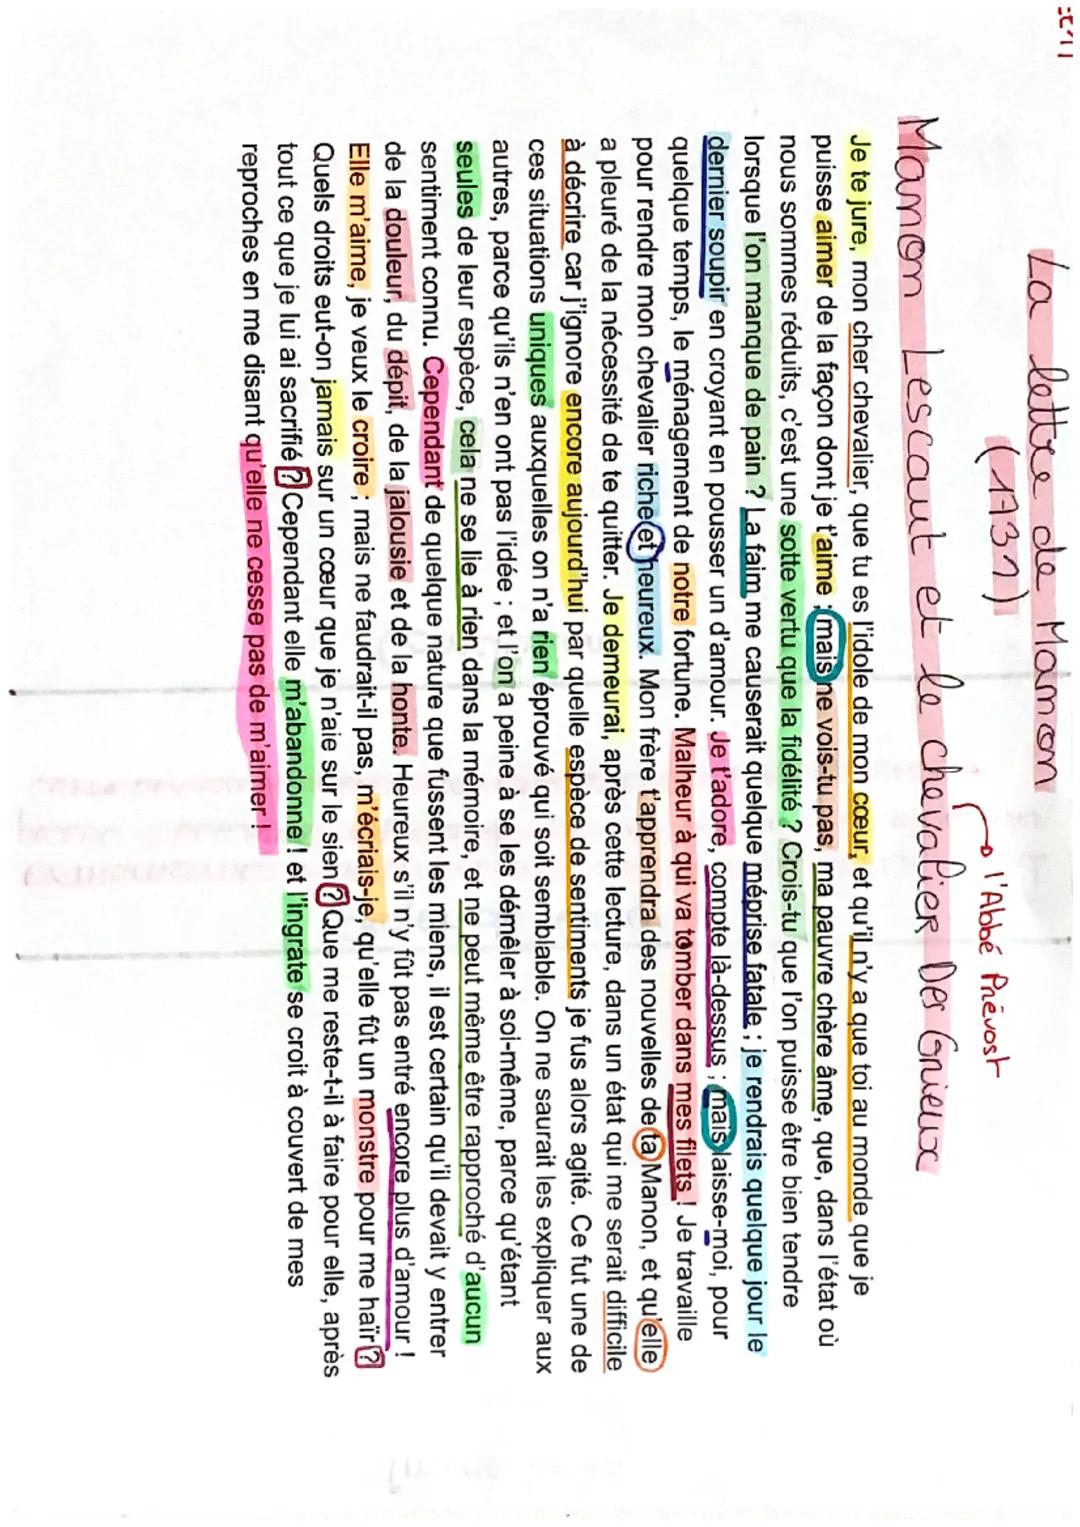 La lettre de Manon
(1731)
→ l'Abbé Prévost
Manon Lescaut et le chevalier Des Grieux
Je te jure, mon cher chevalier, que tu es l'idole de mon cœur, et qu'il n'y a que toi au monde que je
puisse aimer de la façon dont je t'aime ; mais ne vois-tu pas, ma pauvre chère âme, que, dans l'état où
nous sommes réduits, c'est une sotte vertu que la fidélité ? Crois-tu que l'on puisse être bien tendre
lorsque l'on manque de pain ? La faim me causerait quelque méprise fatale ; je rendrais quelque jour le
dernier soupir en croyant en pousser un d'amour. Je t'adore, compte là-dessus ; mais laisse-moi, pour
quelque temps, le ménagement de notre fortune. Malheur à qui va tomber dans mes filets ! Je travaille
pour rendre mon chevalier riche et heureux. Mon frère t'apprendra des nouvelles de ta Manon, et qu'elle
a pleuré de la nécessité de te quitter. Je demeurai, après cette lecture, dans un état qui me serait difficile
à décrire car j'ignore encore aujourd'hui par quelle espèce de sentiments je fus alors agité. Ce fut une de
ces situations uniques auxquelles on n'a rien éprouvé qui soit semblable. On ne saurait les expliquer aux
autres, parce qu'ils n'en ont pas l'idée ; et l'on a peine à se les démêler à soi-même, parce qu'étant
seules de leur espèce, cela ne se lie à rien dans la mémoire, et ne peut même être rapproché d'aucun
sentiment connu. Cependant de quelque nature que fussent les miens, il est certain qu'il devait y entrer
de la douleur, du dépit, de la jalousie et de la honte. Heureux s'il n'y fût pas entré encore plus d'amour !
Elle m'aime, je veux le croire ; mais ne faudrait-il pas, m'écriais-je, qu'elle fût un monstre pour me haïr ?
Quels droits eut-on jamais sur un cœur que je n'aie sur le sien ? Que me reste-t-il à faire pour elle, après
tout ce que je lui ai sacrifié ? Cependant elle m'abandonne ! et l'ingrate se croit à couvert de mes
reproches en me disant qu'elle ne cesse pas de m'aimer !